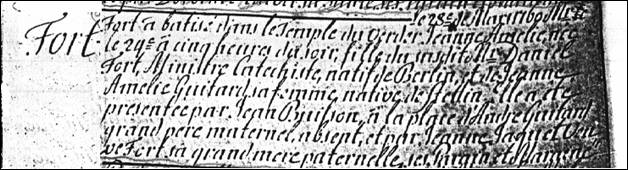 le 28e. de Mars 1690 Mr.
Fort Fort a batisé dans le Temple du Werder Jeanne Amelie, née
le 24e. à cinq heures du soir, fille du susdit Mr. Daniel
Fort, Ministre Catechiste, natif de Berlin, et de Jeanne
Amelie Guitard sa femme, native de Elle a été
presentée par Jean Buisson, à la place d'André Guitard
grand pere maternel absent, et par Jeanne Jaquet
ve Fort sa grand mere paternelle, ses